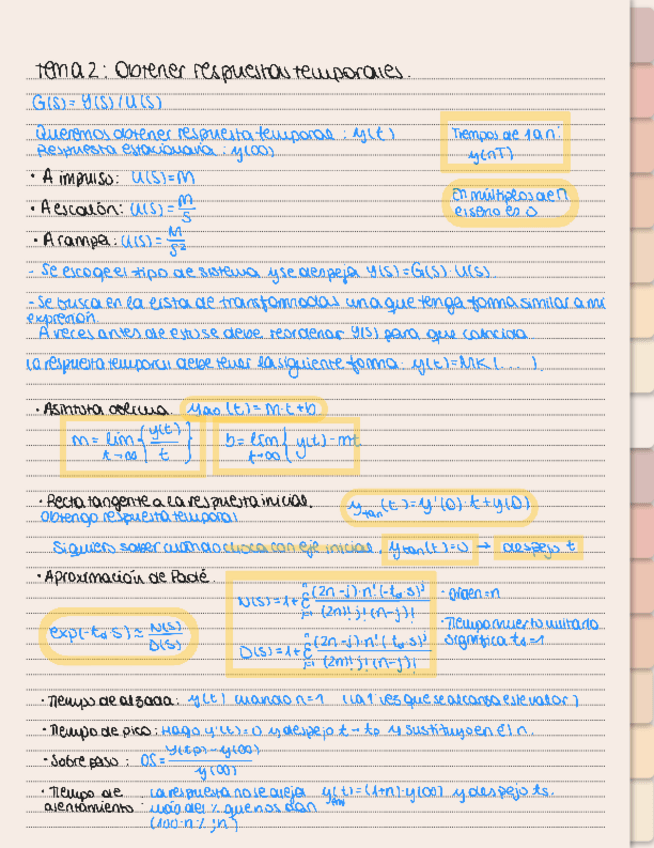 Tema 2: Obtener respuestas temporales.
G(s) = Y(s)/U(s)
Queremos obtener respuesta temporal: y(t)
Respuesta estacionaria: y(∞)
Tiempos de 1 a n:
y(nT)
· A impulso: U(s)=M
En múltiplos de π
el seno es 0
· A escalón: U(s)= M/s
· A rampa: U(s)= M/s²
- Se escoge el tipo de sistema y se despeja Y(s)=G(s)·U(s)
- Se busca en la lista de transformadas una que tenga forma similar a mi
expresión.
A veces antes de esto se debe reordenar Y(s) para que coincida
La respuesta temporal debe tener la siguiente forma: y(t)=MK(...).
· Asíntota oblicua. y_ao(t)=m·t+b
m = lim t→∞ {y(t)/t} b = lim t→∞ {y(t)-mt
· Recta tangente a la respuesta inicial. y_tan(t)=y'(0)·t+y(0)
Obtengo respuesta temporal
Si quiero saber cuando choca con eje inicial, y_tan(t)=0 → despejo t
· Aproximación de Padé.
N(s)=1+Σ (2n-j)·n!(-td·s)^j / (2n)! j!(n-j)!
· Orden = n
exp(-td·s) ≈ N(s)/D(s)
· Tiempo muerto unitario
significa td=1
D(s)=1+Σ (2n-j)·n!(td·s)^j / (2n)! j!(n-j)!
· Tiempo de alzada: y(t) cuando n=1 (la 1 vez que se alcanza este valor)
· Tiempo de pico: Hago y'(t)=0 y despejo t→tp y sustituyo en él n.
· Sobre paso: OS= y(tp)-y(∞) / y(∞)
· Tiempo de asentamiento: La respuesta no se aleja y(t)=(1+n)·y(∞) y despejo ts.
más del % que nos dan
(100·n%; n)